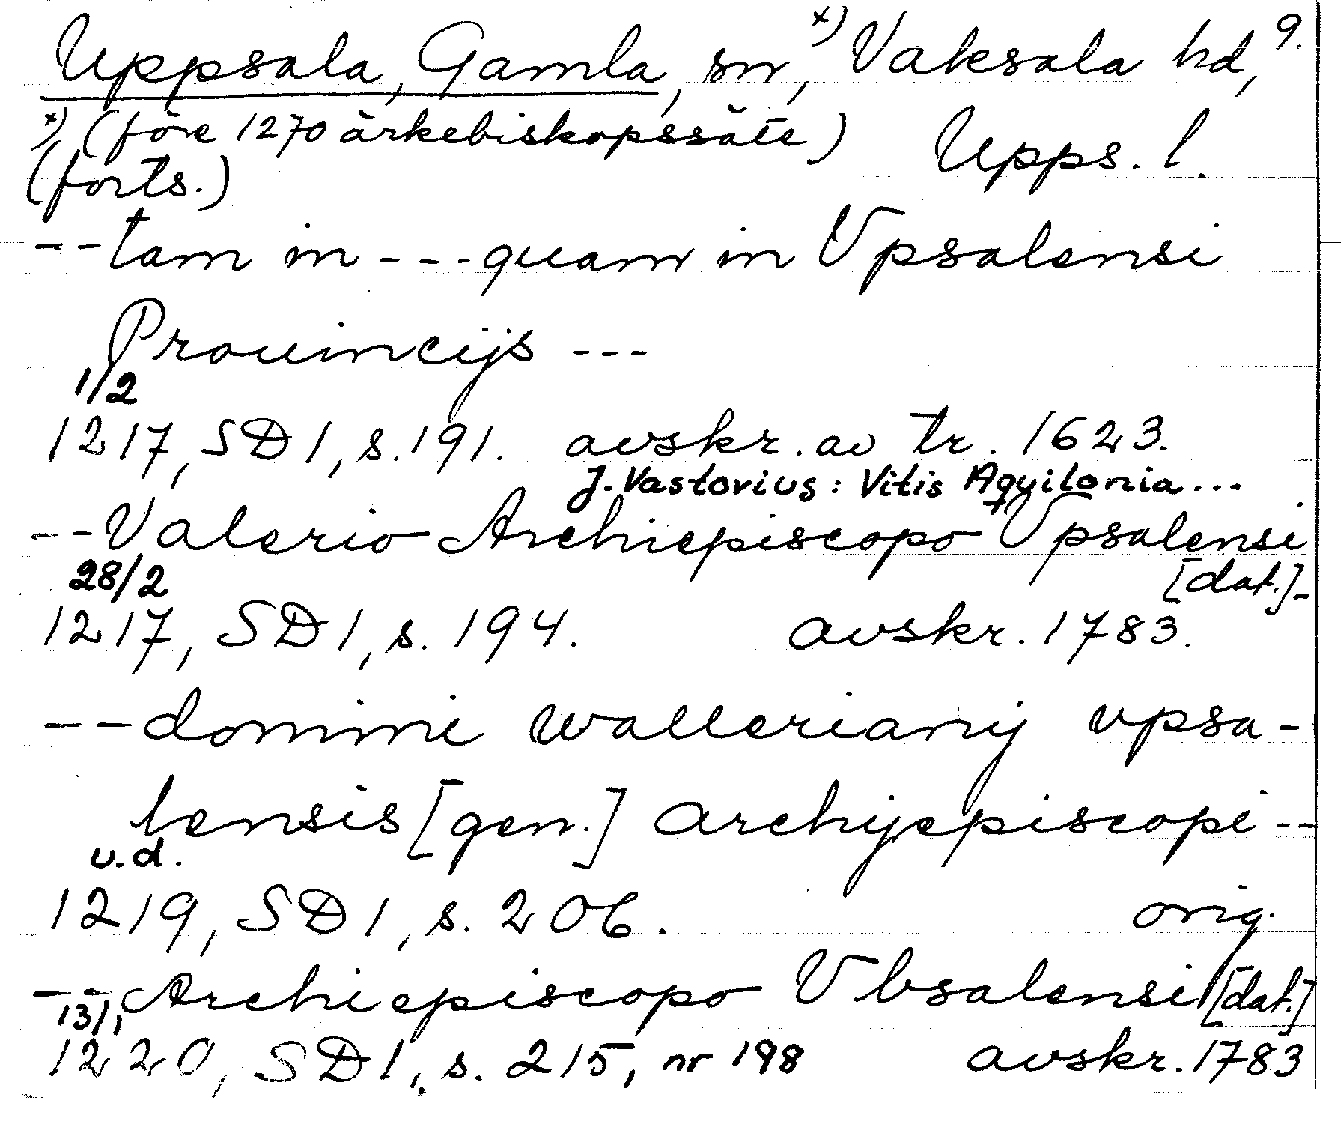 Uppsala, Gamla, sn, x) Vaksala hd, 9.
x) (före 1270 ärkebiskopssäte) Upps. l.
(forts.)
-- tam in --- quam in Vpsalensi
Prouincijs ---
1/2
1217, SD 1, s. 191. avskr. av tr. 1623.
J. Vastovius: Vitis Aquilonia...
-- Valerio Archiepiscopo Vpsalensi
28/2 [dat.]-
1217, SD 1, s. 194. avskr. 1783.
-- domini wallerianij vpsa-
lensis [gen.] archijepiscopi --
u.d.
1219, SD 1, s. 206. orig.
-- Archiepiscopo Vbsalensi [dat.]
13/1
1220, SD 1, s. 215, nr 198 avskr. 1783